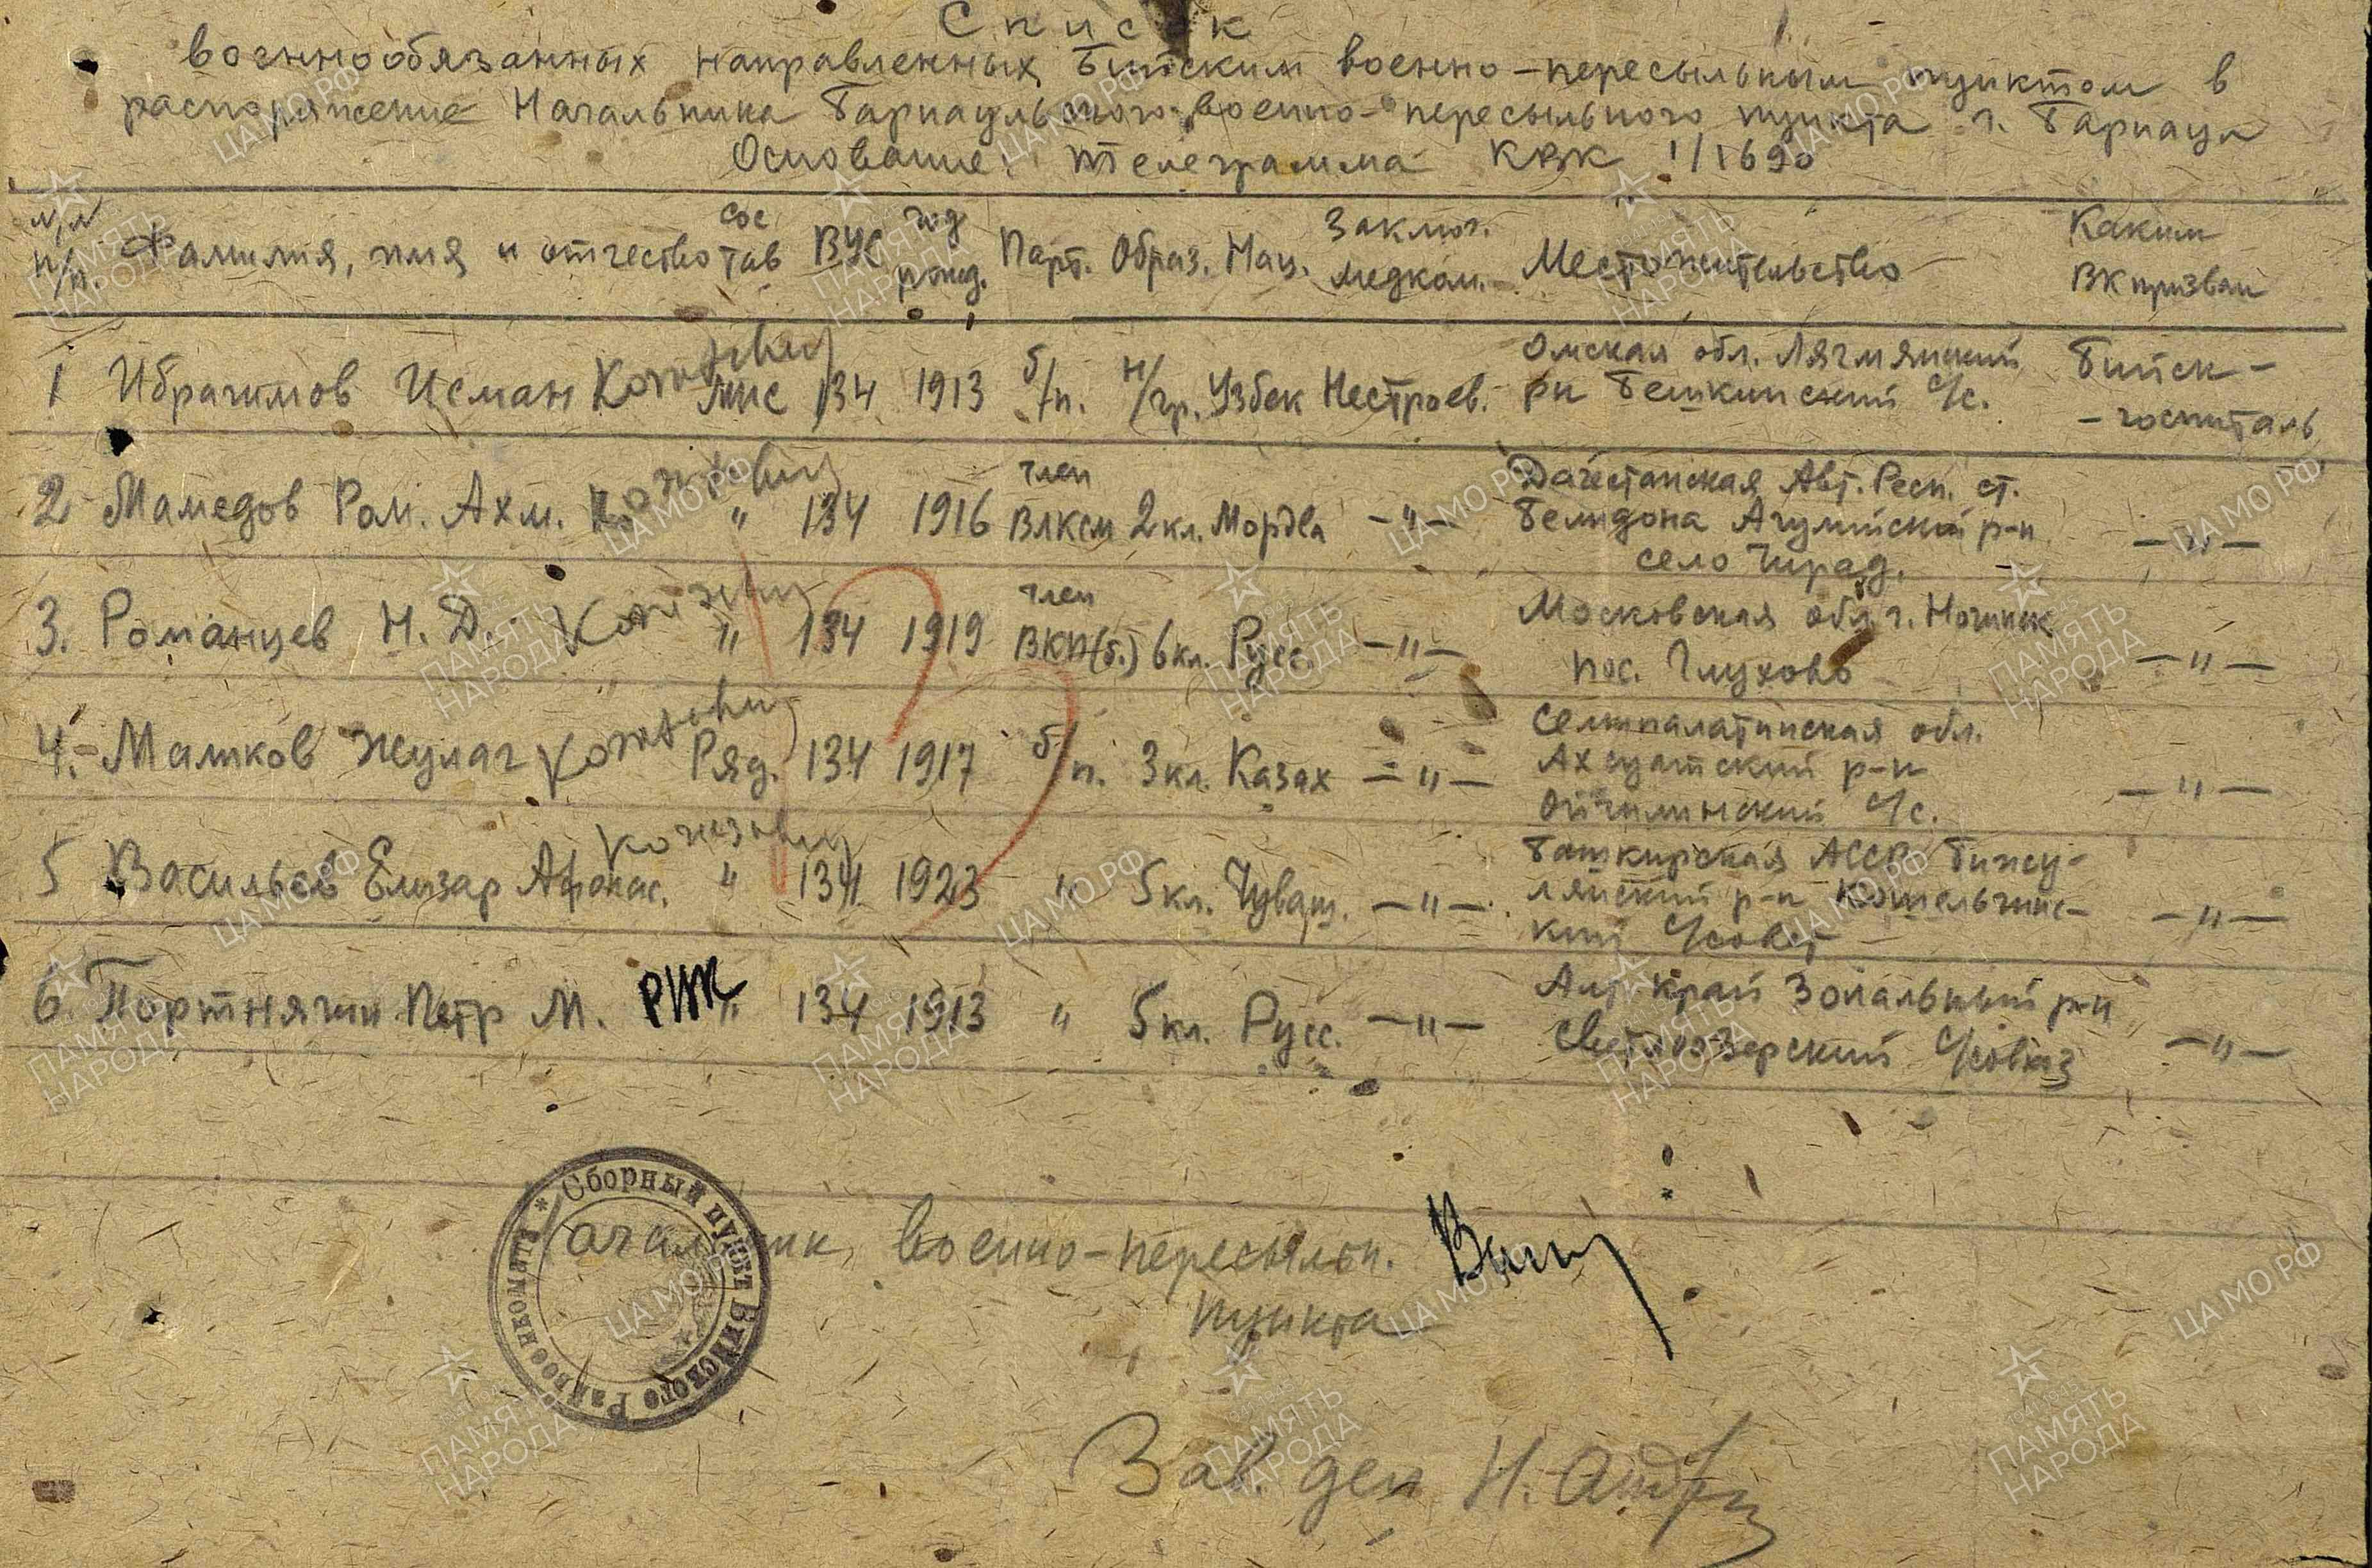 Список
военнообязанных направленных Бийским военно-пересыльным пунктом в
распоряжение Начальника Барнаульского военно-пересыльного пункта г. Барнаул
Основание: телеграмма КВК 1/1690
№/№ п/п. Фамилия, имя и отчество состав ВУС год рожд. Парт. Образ. Нац. Заключ. медком. Местожительство Каким ВК призван
1 Ибрагимов Исман Кожзавод мнс 134 1913 б/п. н/гр. Узбек Нестроев. Омская обл.
рн с/с. Бийск-
-госпиталь
2 Мамедов Рам. Ахм. Кожзавод " 134 1916 член ВЛКСМ 2 кл. Мордва -"- Дагестанская Авт. Респ. ст.
р-н -"-
село
3. Романцев Н. Д. Кожзавод " 134 1919 член ВКП(б.) 6 кл. Русс. -"- Московская обл. г. Ногинск
пос. Глухово -"-
4.- Машков Кожзавод Ряд. 134 1917 б/п. 3 кл. Казах -"- Семипалатинская обл.
р-н -"-
с/с.
5 Васильев Елизар Афонас. Кожзавод " 134 1923 " 5 кл. Чуваш. -"- Башкирская АССР Бижу-
ляйский р-н -"-
с/совет
6. Портнягин Петр М. РВК " 134 1913 " 5 кл. Русс. -"- Алт. край Зональный р-н
Светлоозерский с/совет -"-
* Сборный пункт Бийского Райвоенкомата
Начальник военно-пересыльн.
пункта
Зав. дел Н.
ЦА МО РФ
ПАМЯТЬ НАРОДА